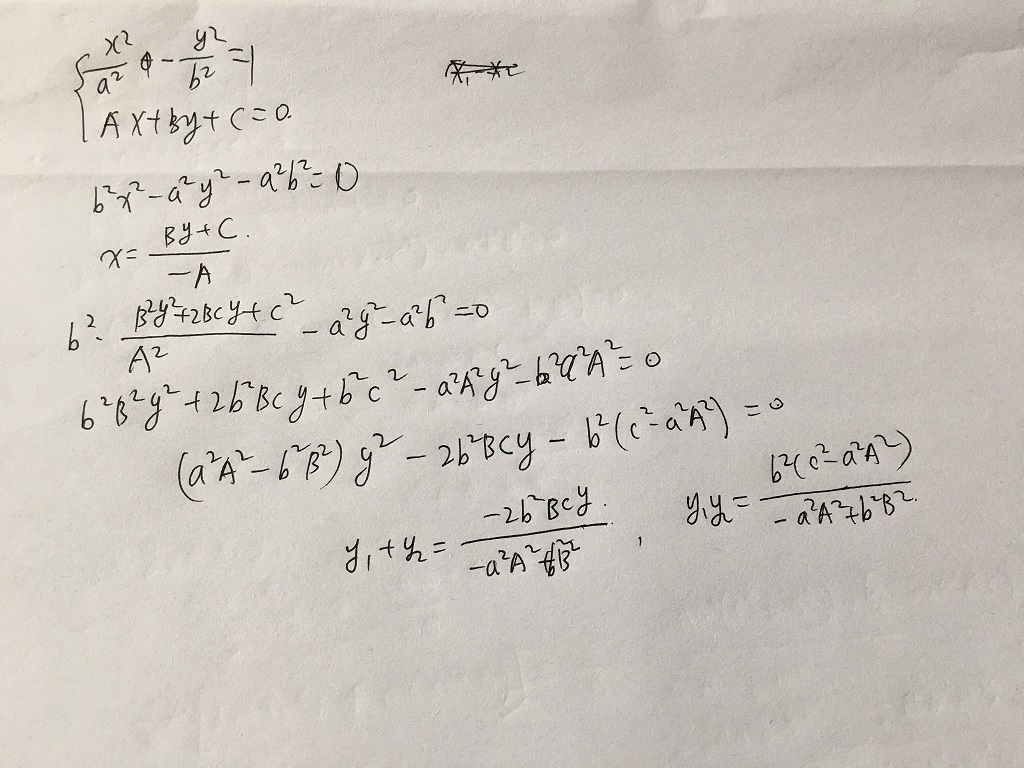 x²/a² - y²/b² = 1
Ax+By+C=0.
b²x²-a²y²-a²b²=0
x= (By+C)/(-A).
b²·(B²y²+2BCy+C²)/A² - a²y²-a²b²=0
b²B²y²+2b²BCy+b²C²-a²A²y²-b²a²A²=0
(a²A²-b²B²)y²-2b²BCy-b²(C²-a²A²)=0
y₁+y₂= (-2b²BCy)/(-a²A²+b²B²), y₁y₂= b²(C²-a²A²)/(-a²A²+b²B²).